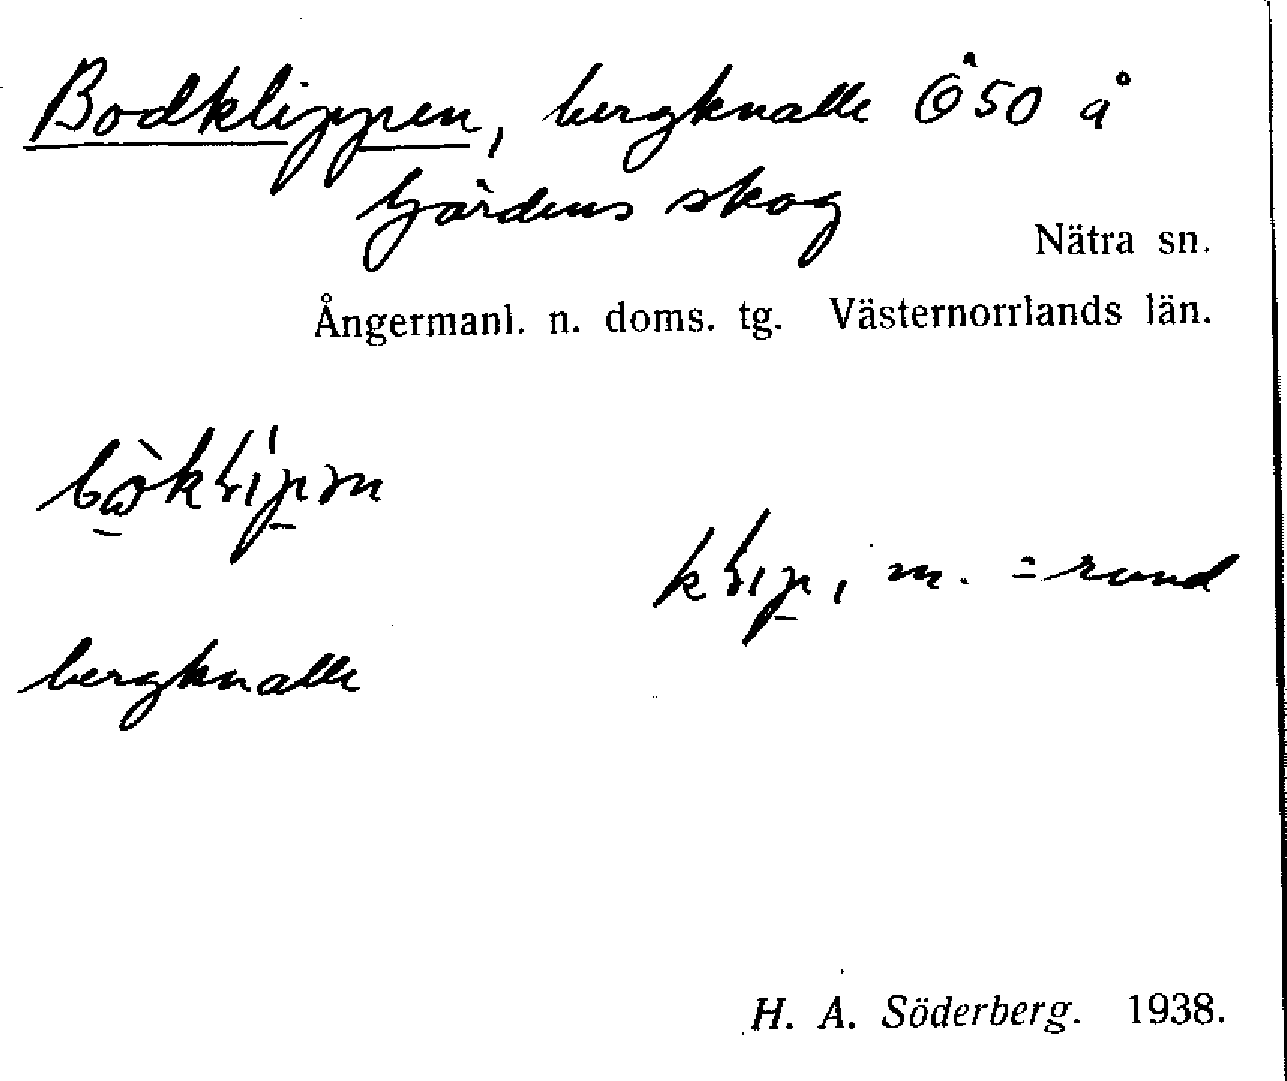 Bodklippen, bergknalle Ö 50 å
Gärdens skog
Nätra sn.
Ångermanl. n. doms. tg. Västernorrlands län.
m. = rund
bergknalle
H. A. Söderberg. 1938.